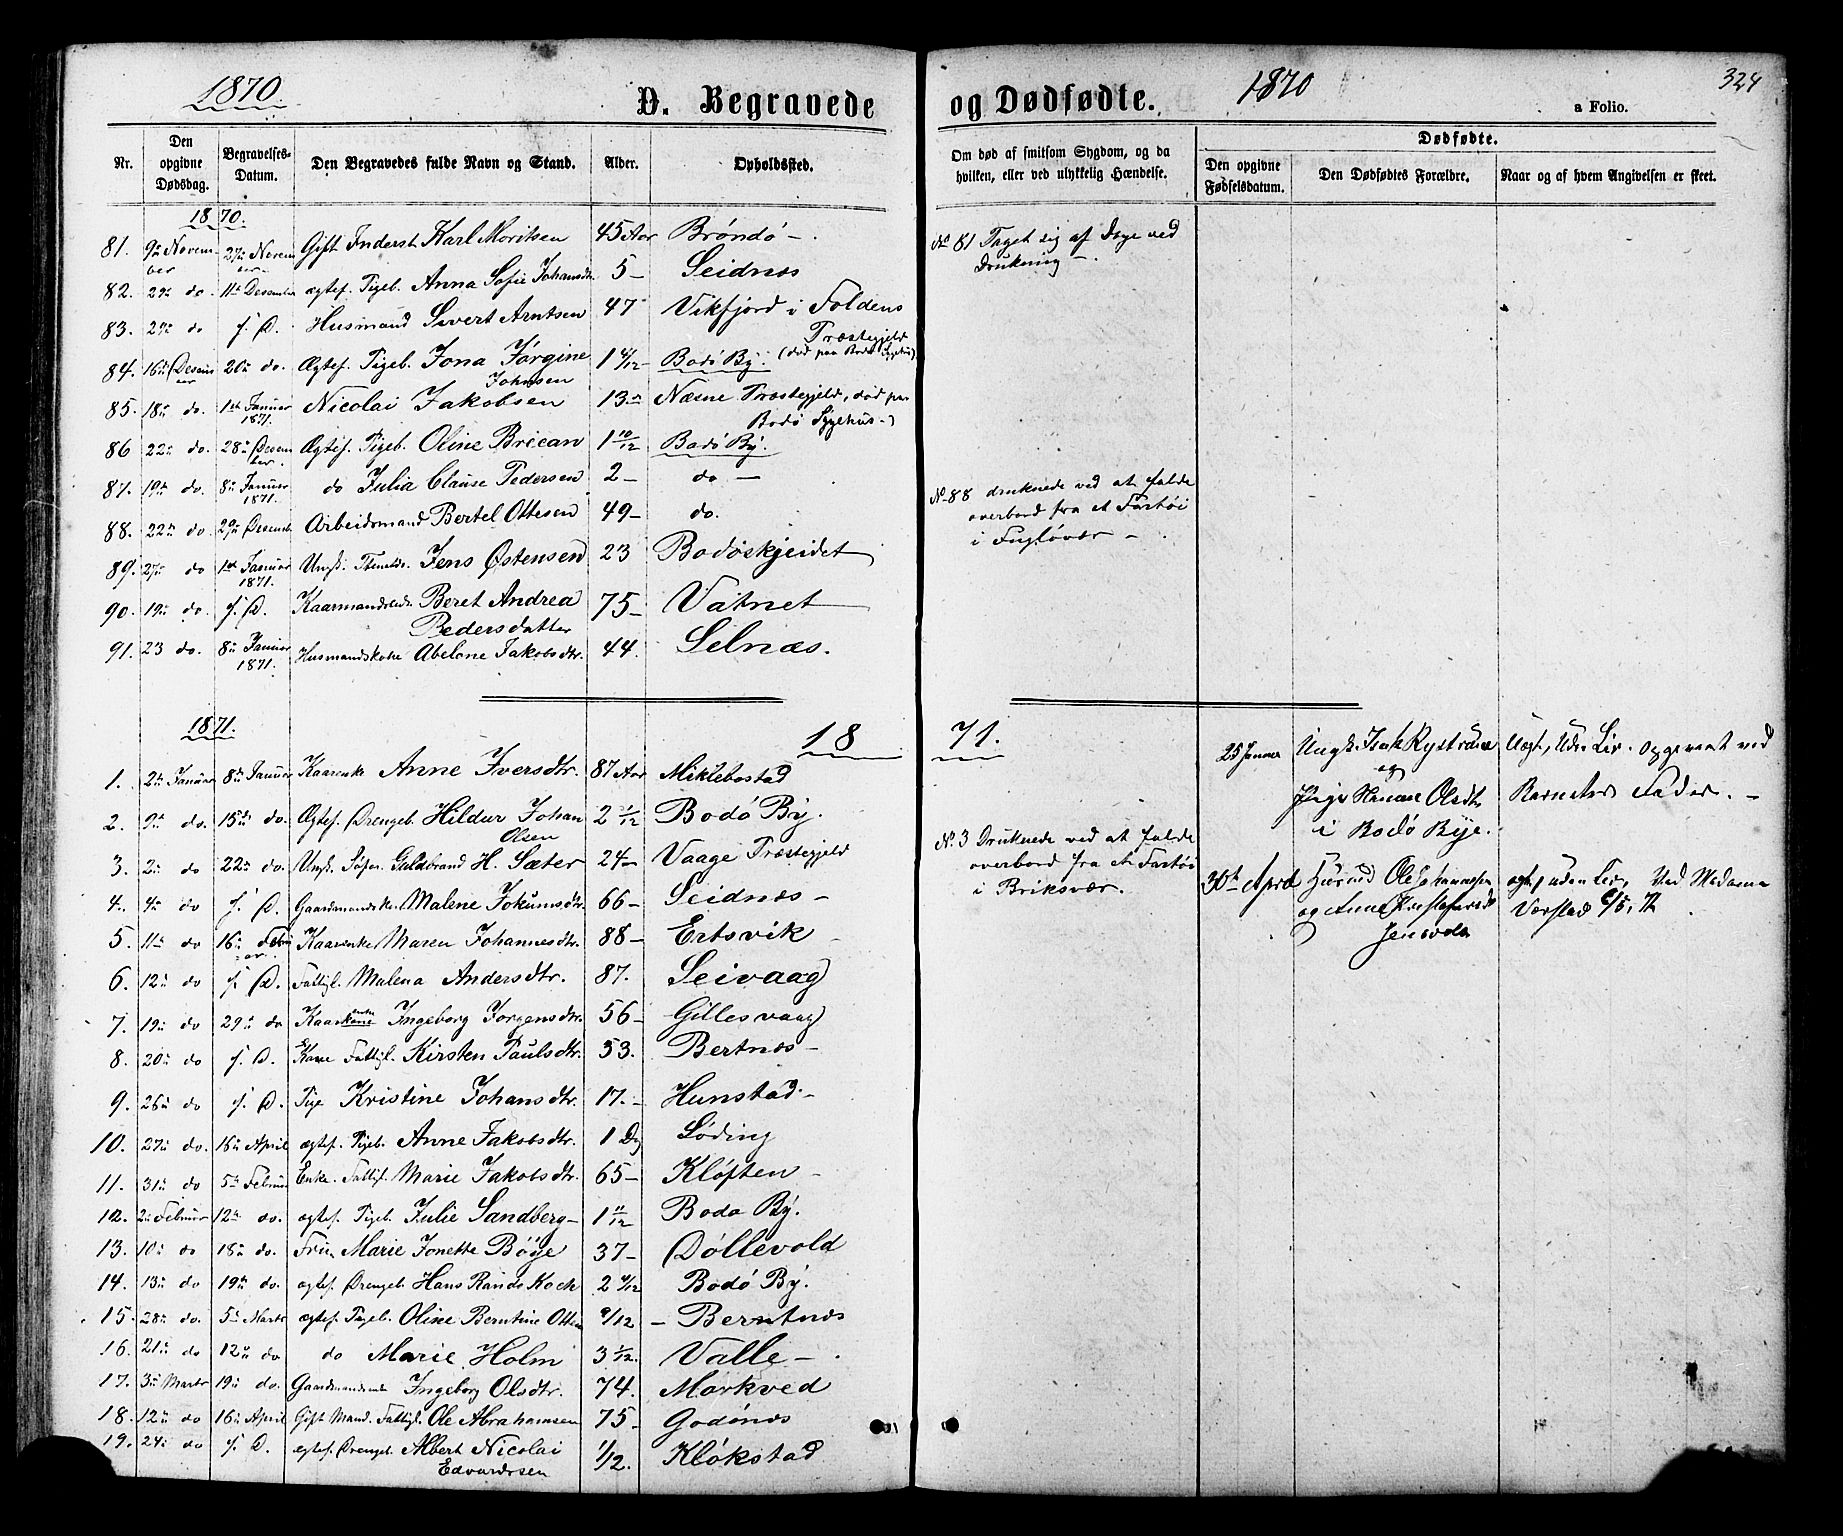 1870.
D. Begravede
Nr.
Den opgivne Dødsdag.
Begravelses-Datum.
Den Begravedes fulde Navn og Stand.
Alder.
Opholdssted.
1870.
81. 9de November 27de November Gift Inderst Karl Moritsen 45 Aar Brøndø
82. 29de do. 11te Desember ægtef. Pigeb. Anna Sofie Johansdtr. 5 – Seidnæs
83. 29de do f. D. Husmand Sivert Arntsen 47 Vikfjord i Foldens Præstegjeld
84. 16de Desember 20de do. Ægtef. Pigeb. Jona Jørgine Johnsen 1 /12 – Bodø By. (død paa Bodø Sygehus)
85. 18de do. 1ste Januar 1871. Nicolai Jakobsen 13 Næsne Præstegjeld, død paa Bodø Sygehus –)
86 22de do. 28de Desember. Ægtef. Pigeb. Oline Breean 1 10/12 Bodø By.
87. 19de do. 8de Januar 1871. do Julia Clause Pedersen 2 – do –
88. 22de do. 29de Desemb. Arbeidsmand Bertel Ottesen 49 – do.
89. 27de do 1ste Januar 1871. Ungk. Jens Østensen 23 Bodøskjeidet
90. 19de do. f. D. Kaarmandsenke Beret Andrea Pedersdatter 75 – Vatnet
91. 23 do. 8de Januar 1871. Husmandskone Abelone Jakobsdtr. 44. Selnæs.
1871.
18
1. 2de Januar 8de Januar Kaarenke Anne Iversdtr. 87 Aar Miklebostad
2. 9de do. 15de do. Ægtef. Drengeb. Hildur Johan Olsen 2 1/12 Bodø By.
3. 2de do 22de do. Ungk. Guldbrand H. Sæter 24 – Vaage Præstegjeld
4. 4de do f. D. Gaardmandske. Malene Jokumsdtr. 66 – Seidnæs –
5. 11te do 16de Februar. Kaarenke Maren Johannesdtr. 88 – Ertsvik
6. 12te do f. D. Fattigl. Malena Andersdtr. 87. Seivaag
7. 19de do 29de do Kaarkone enke Ingeborg Jorgensdtr. 56 – Gillesvaag
8. 20de do f. D. Kone Fattigl. Kirsten Paulsdtr. 53. Bertnæs –
9. 26de do f. D. Pige Kristine Johansdtr. 17. – Hunstad –
10. 27de do. 16de April ægtef. Pigeb. Anne Jakobsdtr. 1 Dg Løding
11. 31te do 5te Februar Enke. Fattigl. Marie Jakobsdtr. 65 – Kløften –
12. 2de Februar 12te do. ægtef. Pigeb. Julie Sandberg – 1 11/12 Bodø By.
13. 10de do 18de do. Fru Marie Jonette Bøye 37 – Døllevold
14. 13de do 19de do. ægtef. Drengeb. Hans Rands Koch 2 /12 Bodø By.
15. 28de do. 5te Marts ægtef. Pigeb. Oline Berntine Otte /12 – Berntnæs
16. 21de do 12te do do Marie Holm 3 1/12. Valle –
17. 3de Marts 19de do. Gaardmandsenke Ingeborg Olsdtr. 74. Mørkved
18. 12te do 16de April Gift Mand. Fattigl. Ole Abrahamsen 75 – Godønæs
19. 24de do f. D. ægtef. Drengeb. Albert Nicolai Edvardsen 1/12. Kløkstad
og Dødfødte.
1870
a Folio.
324
Om død af smitsom Sygdom, og da hvilken, eller ved ulykkelig Hændelse.
Dødfødte.
Den opgivne Fødselsdatum.
Den Dødfødtes Forældre.
Naar og af hvem Angivelsen er skeet.
No 81 Taget sig af Dage ved
Drukning –.
No 88 druknede ved at falde
overbord fra et Fartøi
i Fugløvær –
71.
No. 3 Druknede ved at falde
overbord fra et Fartøi
i Briksvær.
25 Januar Ungk. Isak Rystrøm
og
Pige Hansine Olsdt
i Bodø Bye.
Uægt, Uden Liv. opgivet ved
Barnets Fader. –
30te April Ole Johannesen
og Anne Kristofa
Jensdtr
ægt, uden Liv, Ved Madame
Værstad 6/5, 72